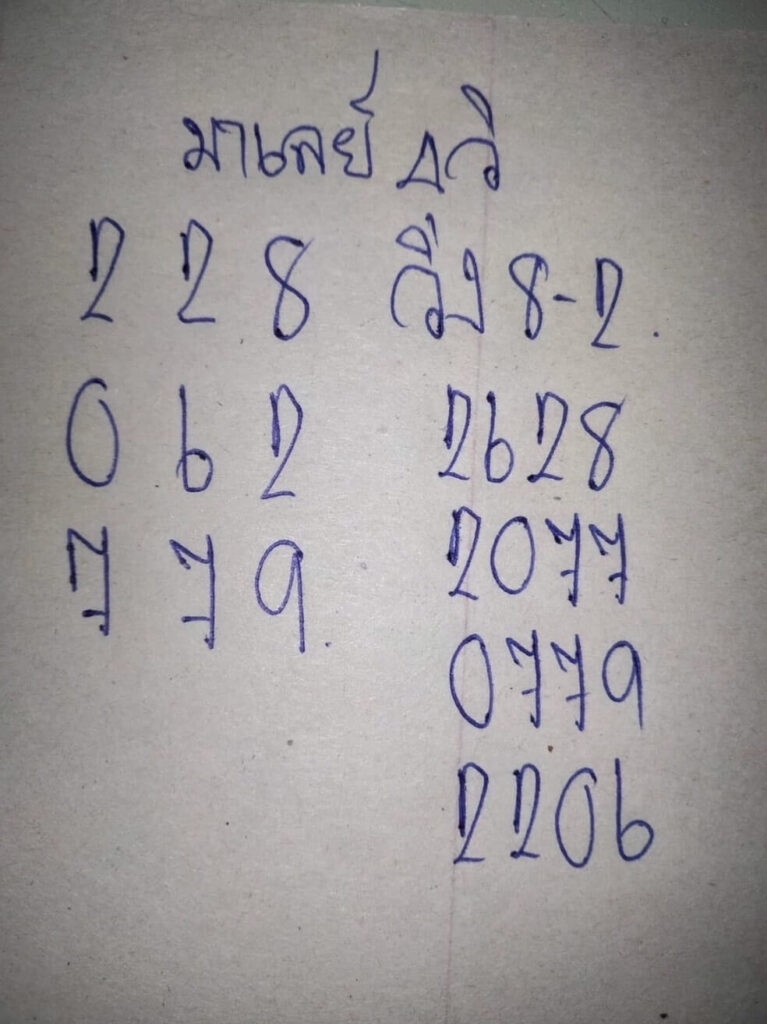 มาเลย์ 4วิ
2 2 8 วิ่ง 8-2.
0 6 2 2628
7 7 9. 2077
0779
2206